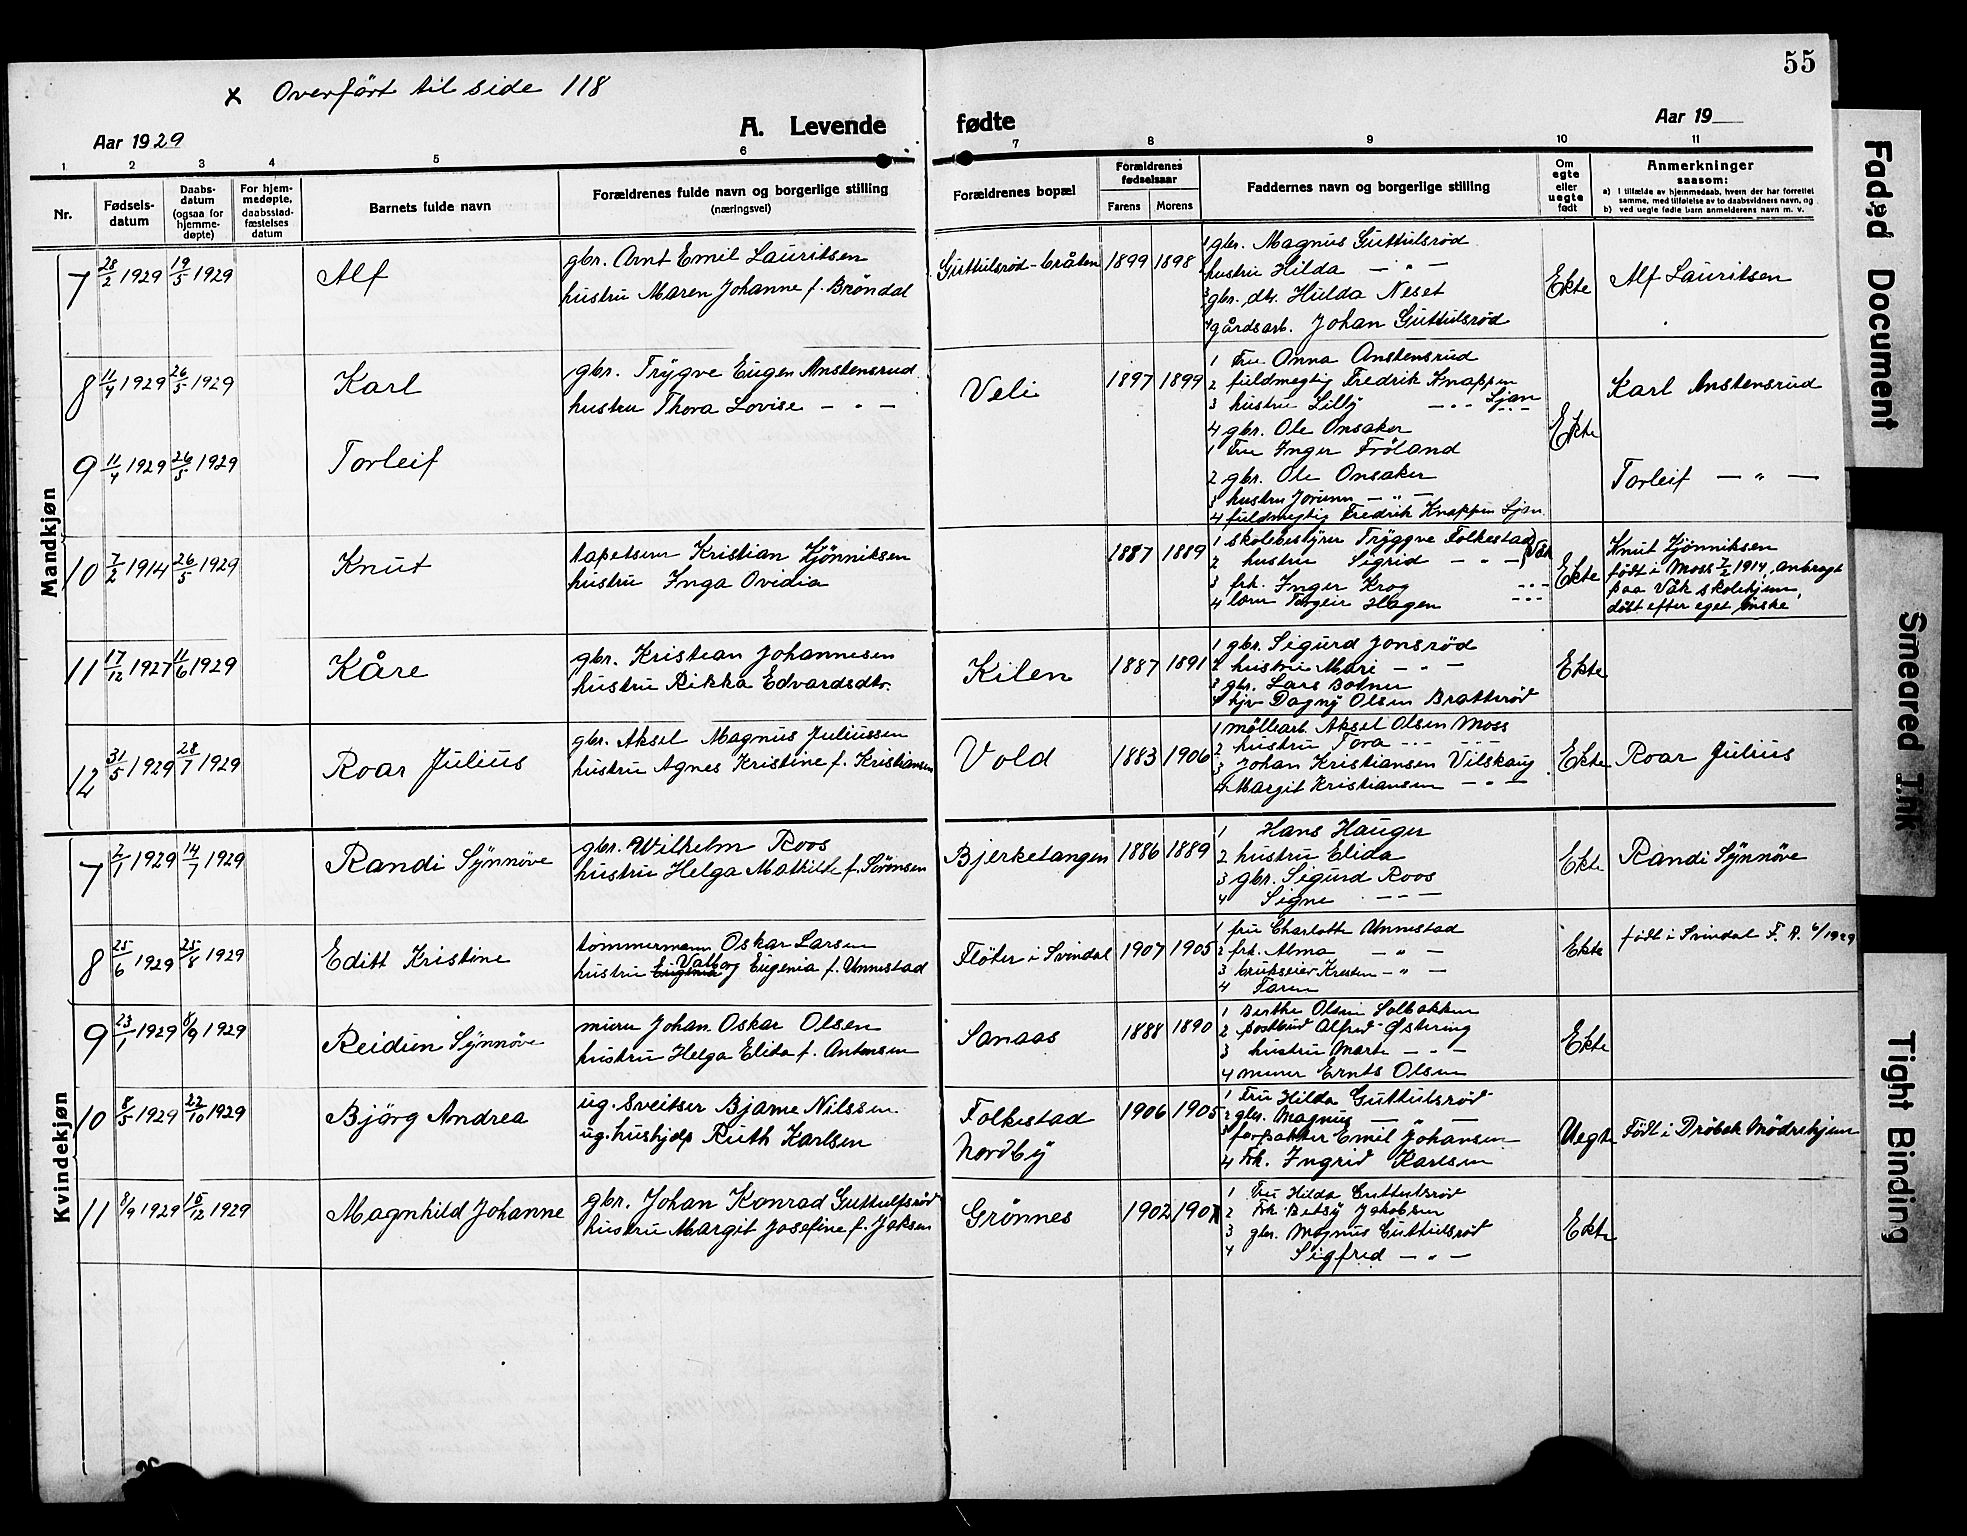 55
x Overført til side 118
Aar 1929
A. Levende fødte
Aar 19
1 2 3 4 5 6 7 8 9 10 11
Nr.
Fødsels-
datum
Daabs-
datum
(ogsaa for
hjemme-
døpte)
For hjem-
medøpte,
daabsstad-
fæstelses
datum
Barnets fulde navn
Forældrenes fulde navn og borgerlige stilling
(næringsvei)
Forældrenes bopæl
Forældrenes
fødselsaar
Farens Morens
Faddernes navn og borgerlige stilling
Om
egte
eller
uegte
født
Anmerkninger
saasom:
a) I tilfælde av hjemmedaab, hvem der har forrettet
samme, med tilføielse av to daabsvidners navn, og
b) ved uegte fødte barn anmelderens navn m. v.
Mandkjøn
7 28/2 1929 19/5 1929 Alf
gbr. Arnt Emil Lauritsen
hustru Maren Johanne f. Brøndal
Guttulsrød-bråten 1899 1898
1 gbr. Magnus Guttulsrød
hustru Hilda — " —
3 gbr. dtr. Hulda Neset
4 gårdsarb. Johan Guttulsrød
Ekte Alf Lauritsen
8 11/4 1929 26/5 1929 Karl
gbr. Trygve Eugen Anstensrud
hustru Thora Lovise — " —
Veli 1897 1899
1 Fru Anna Anstensrud
2 fuldmegtig Fredrik Knappen
3 hustru Lilly — " — Ljan
4 gbr. Ole Onsaker
Ekte Karl Anstensrud
9 11/4 1929 26/5 1929 Torleif
1 Fru Inger Frøland
2 gbr. Ole Onsaker
3 hustru Jorunn — " —
4 fuldmegtig Fredrik Knappen Ljan
Torleif — " —
10 7/2 1914 26/5 1929 Knut
tapetserer Kristian Kjønniksen
hustru Inga Ovidia
1887 1889
1 skolebestyrer Tryggve Folkestad
2 hustru Sigrid — " — Våk
3 frk. Inger Krog
4 lærer Torgeir Hagen
Ekte Knut Kjønniksen
født i Moss 7/2 1914, anbragt
paa Våk skolehjem,
døbt efter eget ønske
11 17/12 1927 11/6 1929 Kåre
gbr. Kristian Johannesen
hustru Rikka Edvardsdtr.
Kilen 1887 1891
1 gbr. Sigurd Jonsrød
2 hustru Mari — " —
3 gbr. Lars Botner
4 hjv Dagny Olsen Bratterød
Ekte
12 31/5 1929 28/7 1929 Roar Julius
gbr. Aksel Magnus Juliussen
hustru Agnes Kristine f. Kristiansen
Vold 1883 1906
1 møllearb. Aksel Olsen Moss
2 hustru Tora
3 Johan Kristiansen Vilskaug
4 Margit Kristiansen — " —
Ekte Roar Julius
Kvindekjøn
7 2/1 1929 14/7 1929 Randi Synnøve
gbr. Wilhelm Roos
hustru Helga Mathilde f. Sørensen
Bjerketangen 1886 1889
1 Hans Hauger
2 hustru Elida
3 gbr. Sigurd Roos
4 Signe
Ekte Randi Synnøve
8 25/6 1929 25/8 1929 Editt Kristine
tømmermann Oskar Larsen
hustru Valborg Eugenia f. Unnestad
Fløter i Svindal 1907 1905
1 fru Charlotte Unnestad
2 frk. Alma — " —
3 brukseier Kresten — " —
4 Faren
Ekte født i Svindal F. A. 6/1929
9 23/1 1929 8/9 1929 Reidun Synnøve
murer Johan Oskar Olsen
hustru Helga Elida f. Antonsen
Sanaas 1888 1890
1 Berthe Olsen Solbakken
2 postbud Alfred Østering
3 hustru Marte — " —
4 murer Ernts Olsen
Ekte
10 8/5 1929 22/10 1929 Bjørg Andrea
ug. sveitser Bjarne Nilssen
ug. hushjelp Ruth Karlsen
Folkestad
Nordby
1906 1905
1 Fru Hilda Guttulsrød
2 gbr. Magnus —
3 forpakter Emil Johansen
4 Frk. Ingrid Karlsen
Uegte Født i Drøbak Mødrehjem
11 8/9 1929 15/12 1929 Magnhild Johanne
gbr. Johan Konrad Guttulfsrød
hustru Margit Josefine f. Jaksen
Grønnes 1902 1901
1 Fru Hilda Guttulsrød
2 Frk. Betsy Jakobsen
3 gbr. Magnus Guttulsrød
4 Sigfred — " —
Ekte
Faded Document
Smeared Ink
Tight Binding